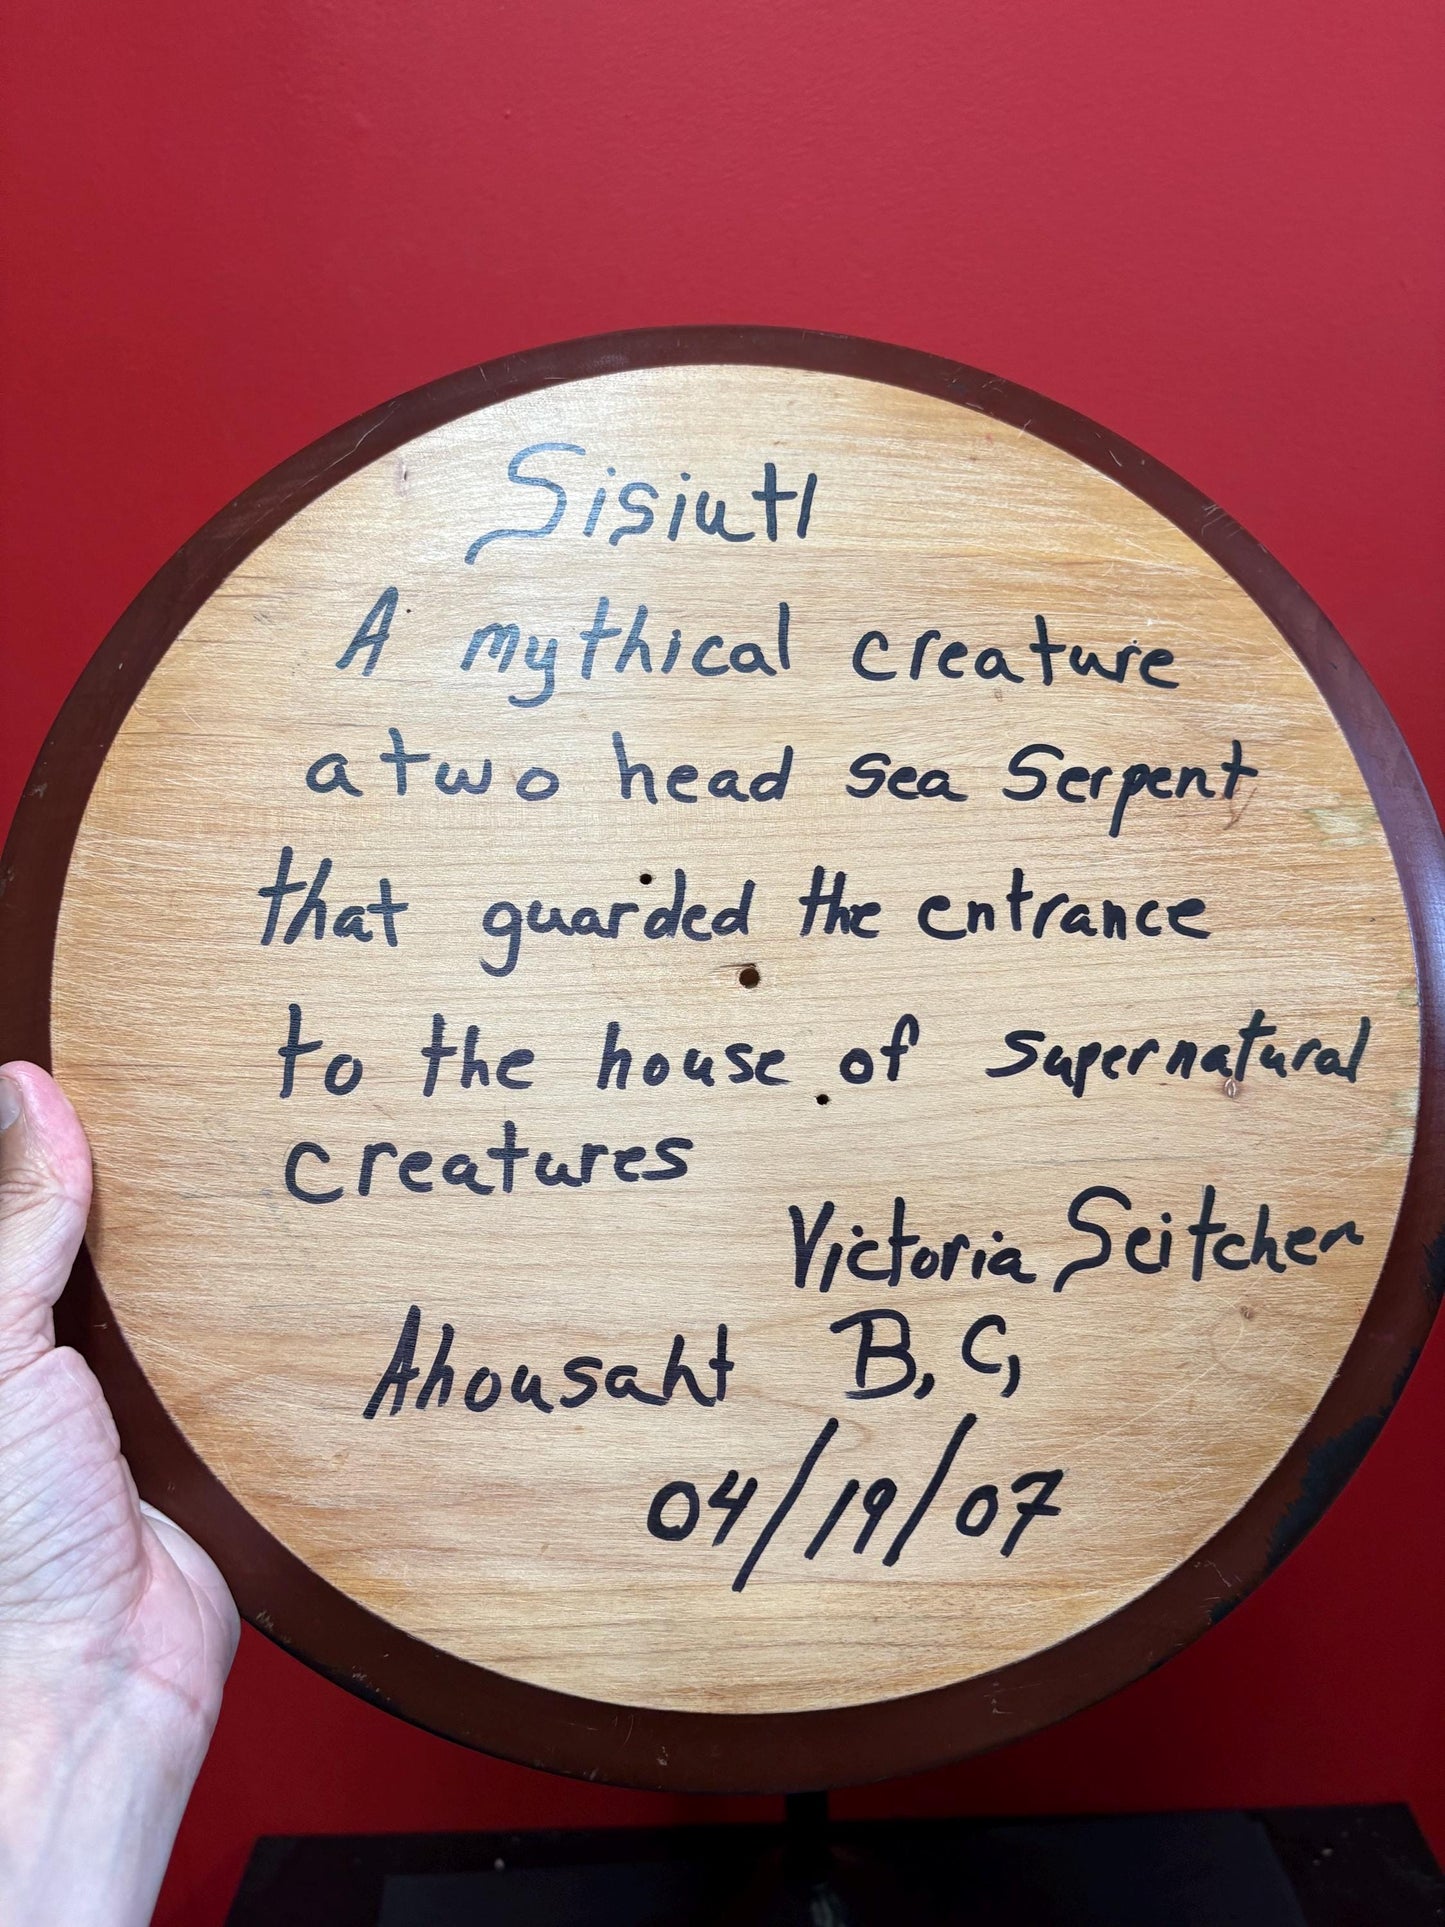 Sisiutl
A mythical creature
a two head sea serpent
that guarded the entrance
to the house of supernatural
creatures
Victoria Seitcher
Ahousaht B.C,
04/19/07